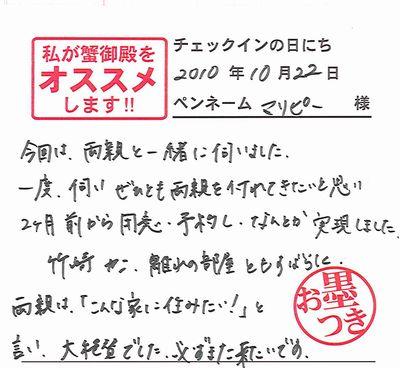 私が蟹御殿を
オススメ
します!!
チェックインの日にち
2010 年 10 月 22 日
ペンネーム マリピー 様
今回は、両親と一緒に伺いました。
一度、伺い ぜひとも両親を連れてきたいと思い
2ヶ月前から 予約し、なんとか実現しました。
竹崎カニ、離れの部屋ともすばらしく、
両親は、「こんな家に住みたい!」と
言い、大絶賛でした。必ずまた来たいです。
お墨
つき